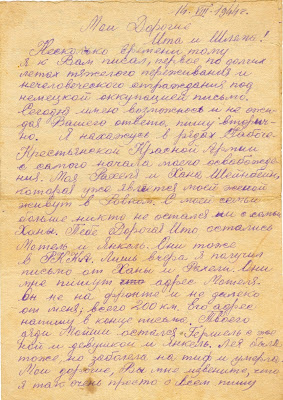 14-VIII-1944 г.
Мои Дорогие
Ита и Шлема!
Несколько времени тому
я к Вам писал, первое по долгих
летах тяжелого переживания и
нечеловеческого страждания под
немецкой оккупацией письмо.
Сегодня имею возможность и не ожи-
дая Вашего ответа, пишу вторич-
но. Я нахожусь в рядах Рабоче-
Крестьянской Красной Армии
с самого начала моего освобожде-
ния. Моя Рахеля и Хана Шейнобин,
которая уже является моей женой
живут в Ровном. С моей семьи
больше никто не остался ни с семьи
Ханы. Тебе Дорогая Ито остались
Мотель и Янкель. Они тоже
в РККА. Лишь вчера я получил
письмо от Ханы и Рахели. Они
мне пишут что адрес Мотеля.
он не на фронте и не далеко
от меня, всего 200 км. Его адрес
напишу в конце письма. Твоего
дяди Мойши остался Гершель с
ной и девушкой и Янкель. Лея была
тоже, но заболела на тиф и умерла.
Мои дорогие, Вы мне извените, что
я так очень просто о всем пишу